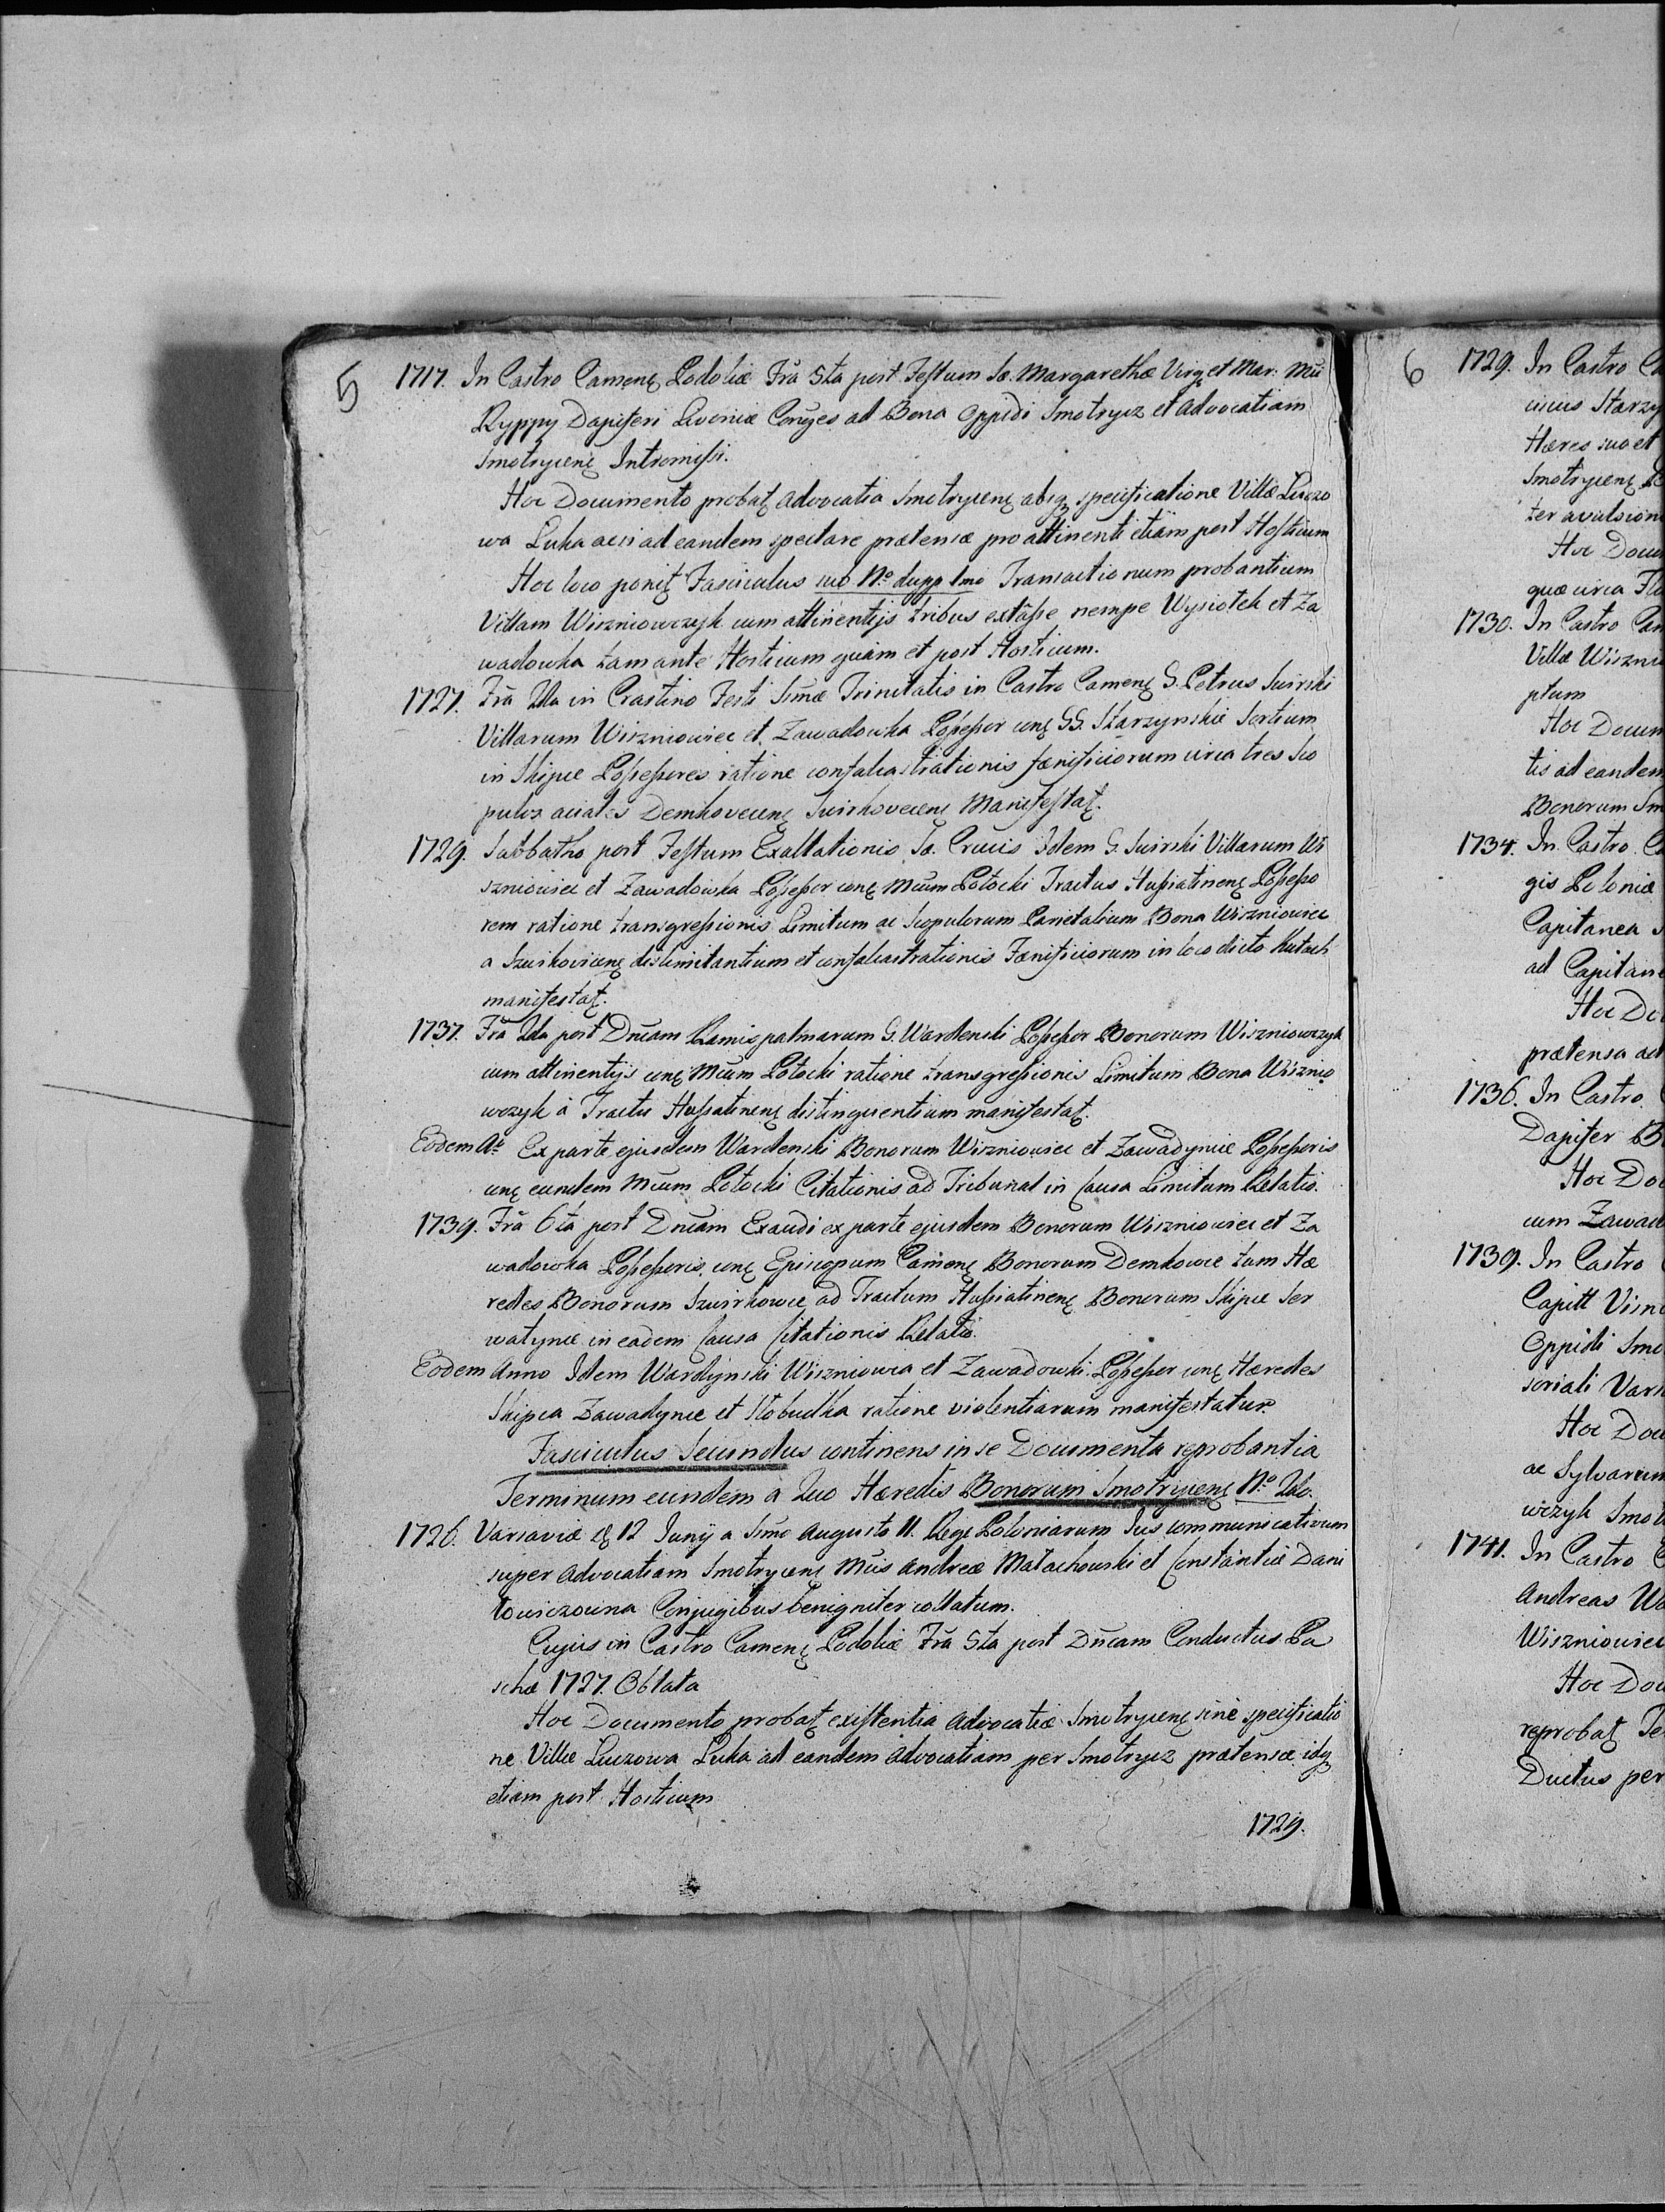 5
1717. In Castro Camenę Podoliæ Fr̃a 5ta post Festum Sæ. Margarethæ Virg et Mar. Mũ
Ryppy Dapiferi Livoniæ Conjuges ad Bona Oppidi Smotrycz et Advocatiam
Smotrycenę Intromissi.
Hoc Documento probatę Advocatia Smotrycenę absqȝ specificatione Villæ Luczo
wa Luka acsi ad eandem spectare prætensæ pro attinenti etiam post Hosticum
Hoc loco ponitę Fasciculus sub No. dupp 1mo Transactionum probantium
Villam Wiszniowczyk cum attinentijs tribus extasse nempe Wysiotek et Za
wadowka tam ante Hosticum quam et post Hosticum.
1727. Fr̃a 2da in Crastino Festi Ssmæ Trinitatis in Castro Camenę G. Petrus Swirski
Villarum Wiszniowiec et Zawadowka Possessor conę GG. Starzynskie Sortium
in Skipce Possessores ratione confalcastrationis fænificiorum circa tres Sco
pulos aciales Demkovecenę Swirkovecenę Manifestatę.
1729. Sabbatho post Festum Exaltationis Sæ. Crucis Idem G. Swirski Villarum Wi
szniowiec et Zawadowka Possessor conę Mcum Potocki Tractus Husiatinenę Possesso
rem ratione transgressionis Limitum ac Scopulorum Parietalium Bona Wiszniowiec
a Szwirkovicenę dislimitantium et confalcastrationis Fænificiorum in loco dicto Kutach
manifestatę.
1737. Fr̃a 2da post Dñcam Ramis palmarum G. Wardenski Possessor Bonorum Wiszniowczyk
cum attinentijs conę Mcum Potocki ratione transgressionis Limitum Bona Wisznio
wczyk à Tractu Husiatinenę distinguentium manifestatę.
Eodem Ao Ex parte ejusdem Wardenski Bonorum Wiszniowiec et Zawadynce Possessoris
conę eundem Mcum Potocki Citationis ad Tribunal in Causa Limitum Relatio.
1739. Fr̃a 6ta post Dñcam Exaudi ex parte ejusdem Bonorum Wiszniowiec et Za
wadowka Possessoris conę Episcopum Camenę Bonorum Demkowce tam Hæ
redes Bonorum Szwirkowce ad Tractum Husiatinenę Bonorum Skipce Ser
watynce in eadem Causa Citationis Relatio.
Eodem Anno Idem Wardynski Wiszniowca et Zawadowki Possessor conę Hæredes
Skipca Zawadynce et Stobudka ratione violentiarum manifestatur.
Fasciculus Secundus continens in se Documenta reprobantia
Terminum eundem a Quo Hæredis Bonorum Smotrycenę No. 2do.
1726. Varsaviæ 12 Junij a Ssmo Augusto II. Rege Poloniarum Jus communicativum
super Advocatiam Smotrycenę Mcis Andreæ Małachowski et Constantiæ Dani
łowiczowna Conjugibus benigniter collatum.
Cujus in Castro Camenę Podoliæ Fr̃a 5ta post Dñcam Conductus Pa
schæ 1727. Oblata
Hoc Documento probatę existentia Advocatiæ Smotrycenę sine specificatio
ne Villæ Luczowa Luka ad eandem Advocatiam per Smotrycz prætensæ idqȝ
etiam post Hosticum
1729.
6
1729. In Castro Ca
cicus Starzy
Hæres suo et
Smotrycenę
ter avulsion
Hoc Docum
quæ circa Flu
1730. In Castro Cam
Villæ Wiszni
ptum
Hoc Docum
tis ad eandem
Bonorum Sm
1734. In Castro Ca
gis Poloniæ
Capitanea
ad Capitane
Hoc Do
prætensa ad
1736. In Castro
Dapifer B
Hoc Doc
cum Zawad
1739. In Castro
Capitt Visn
Oppidi Smo
soriali Vars
Hoc Doc
ac Sylvarum
wczyk Smot
1741. In Castro
Andreas Wa
Wiszniowiec
Hoc Doc
reprobatę Te
Ductus per